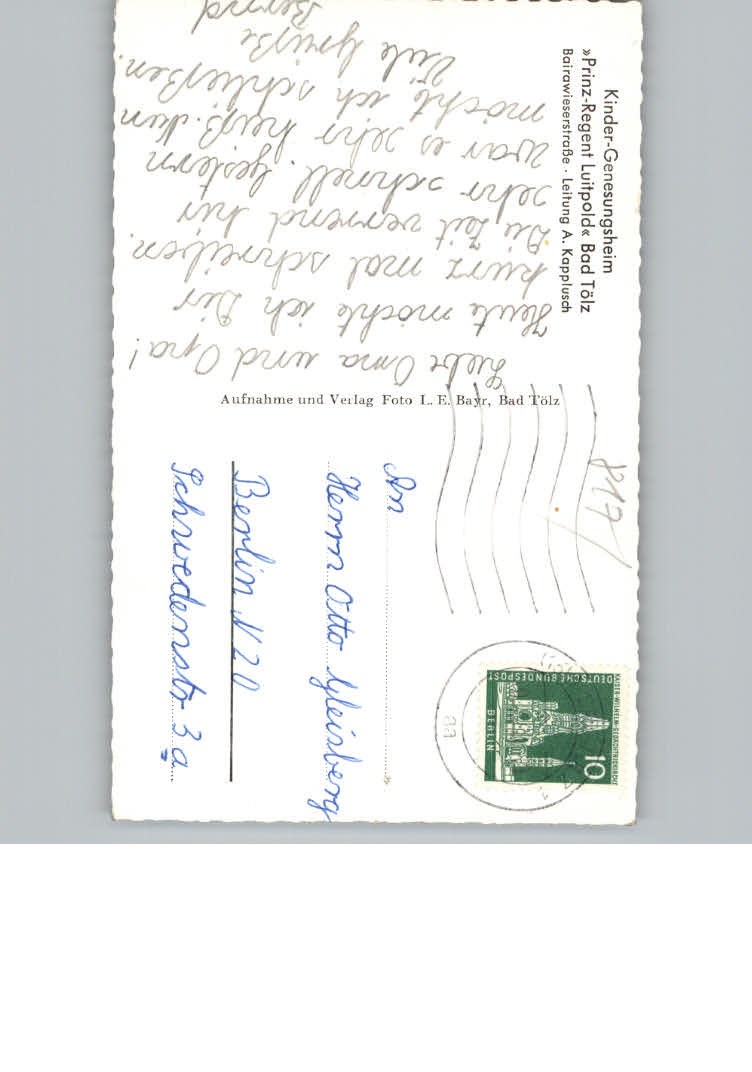 Kinder-Genesungsheim
»Prinz-Regent Luitpold« Bad Tölz
Bairawieserstraße · Leitung A. Kapplusch
Liebe Oma und Opa!
Heute möchte ich Dir
kurz mal schreiben.
Die Zeit verrend hir
sehr schnell. Gestern
war es sehr heiß. Nun
möchte ich schließen.
Viele Grüße
Bernd
Aufnahme und Verlag Foto L. E. Bayr, Bad Tölz
817
DEUTSCHE BUNDESPOST
BERLIN
KAISER-WILHELM-GEDÄCHTNISKIRCHE
10
aa
An
Herrn Otto Gleisberg
Berlin N 20
Schwedenstr 3a